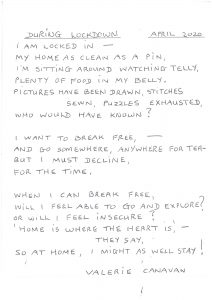 DURING LOCKDOWN APRIL 2020
I AM LOCKED IN —
MY HOME AS CLEAN AS A PIN,
I'M SITTING AROUND WATCHING TELLY,
PLENTY OF FOOD IN MY BELLY.
PICTURES HAVE BEEN DRAWN, STITCHES
SEWN, PUZZLES EXHAUSTED,
WHO WOULD HAVE KNOWN?
I WANT TO BREAK FREE, —
AND GO SOMEWHERE, ANYWHERE FOR TEA-
BUT I MUST DECLINE,
FOR THE TIME.
WHEN I CAN BREAK FREE,
WILL I FEEL ABLE TO GO AND EXPLORE?
OR WILL I FEEL INSECURE?
'HOME IS WHERE THE HEART IS, —
THEY SAY,
SO AT HOME, I MIGHT AS WELL STAY!
VALERIE CANAVAN